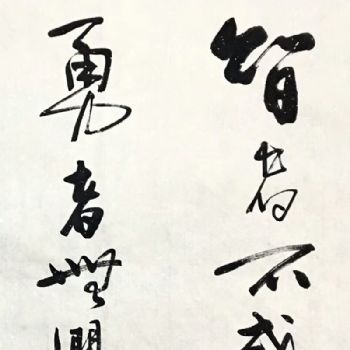 智者不惑
勇者無懼